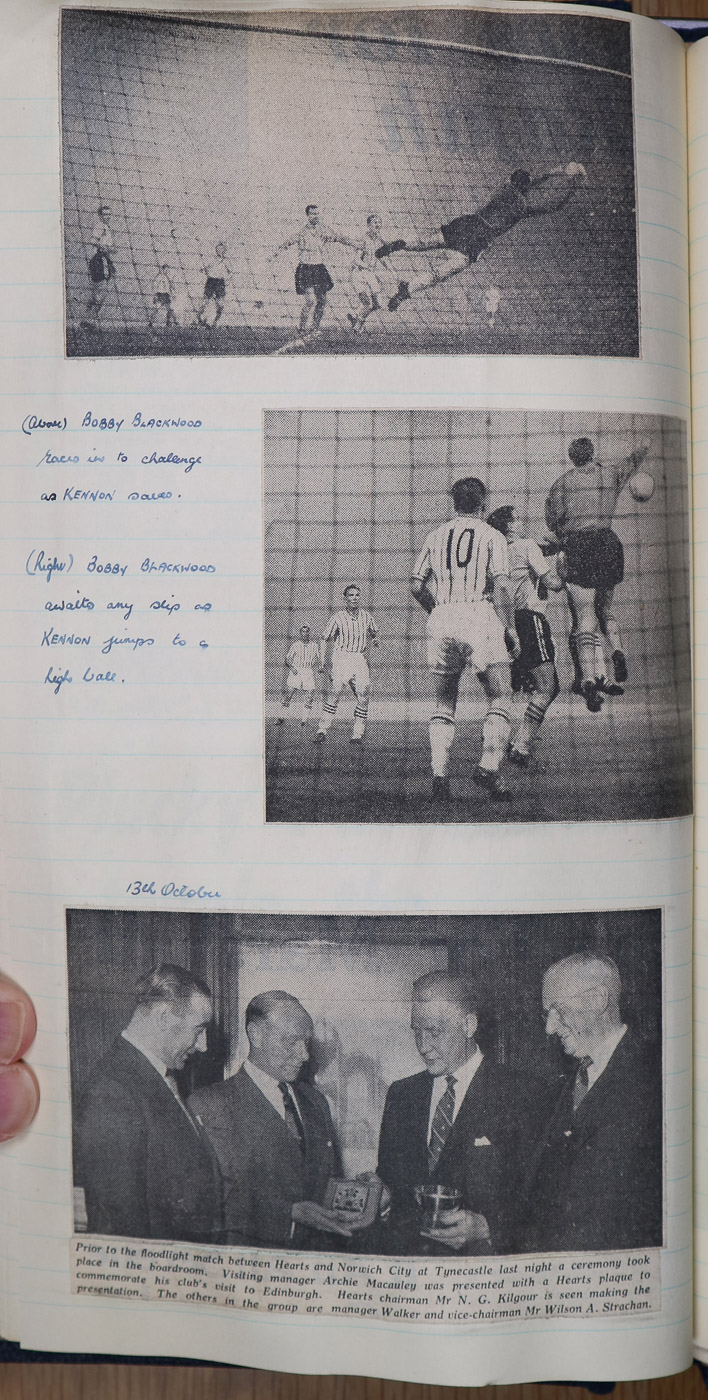 (Above) BOBBY BLACKWOOD
races in to challenge
as KENNON saves.
(Right) BOBBY BLACKWOOD
awaits any slip as
KENNON jumps to a
high ball.
10
13th October
Prior to the floodlight match between Hearts and Norwich City at Tynecastle last night a ceremony took
place in the boardroom. Visiting manager Archie Macauley was presented with a Hearts plaque to
commemorate his club's visit to Edinburgh. Hearts chairman Mr N. G. Kilgour is seen making the
presentation. The others in the group are manager Walker and vice-chairman Mr Wilson A. Strachan.